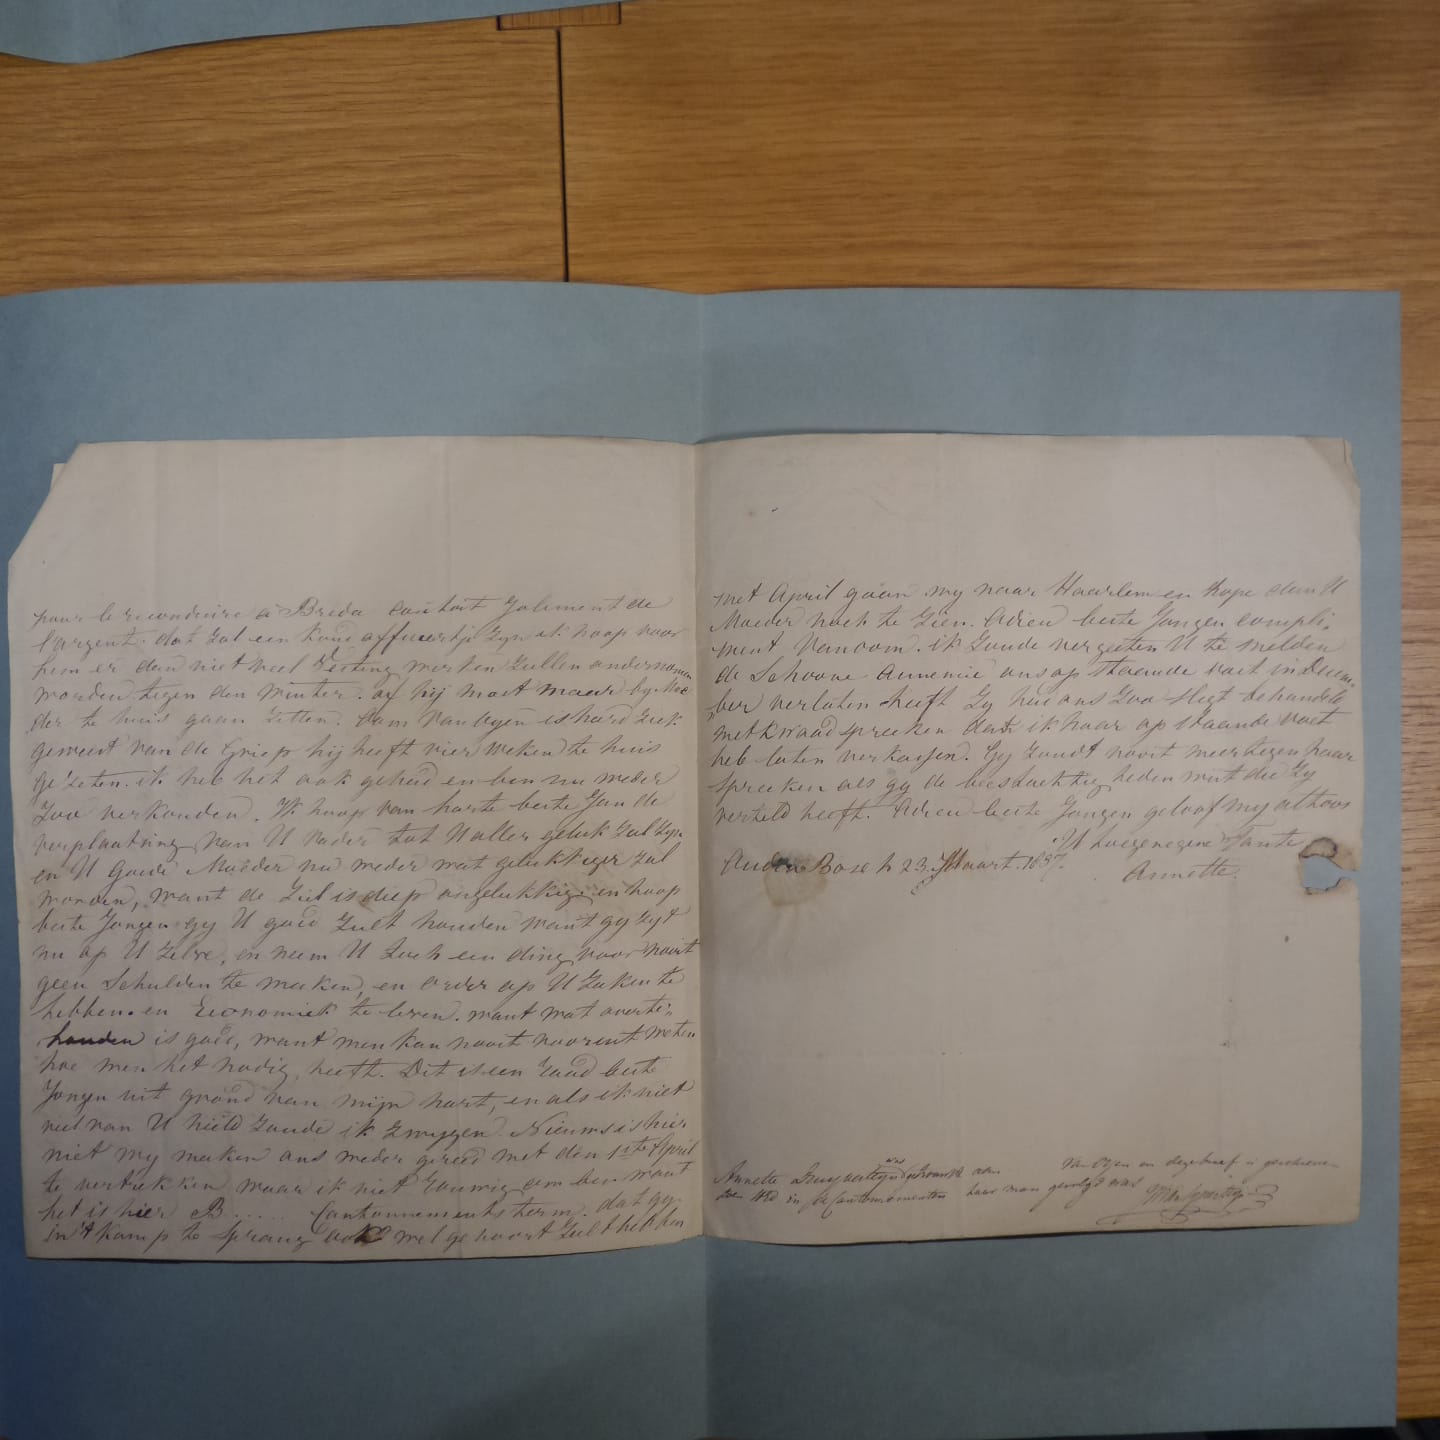 pour le reconduire à Breda coutait joliment de
l'argent. dat zal een koud affueertje zyn ik hoop voor
hem er dan niet veel Vesting werken zullen ondernomen
worden tegen den winter. of hij moet maar by Moe
der te huis gaan zitten. Oom van Oyen is hard ziek
geweest van de Griep hij heeft vier weken te huis
gezeten. ik heb het ook gehad en ben nu weder
zoo verkouden. Ik hoop van harte beste Jan de
verplaatsing van U Vader tot U aller geluk zal zyn
en U goede Moeder nu weder wat gelukkiger zal
worden, want de ziel is diep ongelukkig en hoop
beste Jongen gy U goed zult houden want gy zyt
nu op U zelve, en neem U toch een ding voor nooit
geen Schulden te maken, en order op U zaken te
hebben. en Economiek te leren. want wat overte
houden is goed, want men kan nooit vooruit weten
hoe men het nodig heeft. Dit is een raad beste
Jongen uit grond van mijn hart, en als ik niet
veel van U hield zoude ik zwygen. Nieuws is hier
niet wy maken ons weder gereed met den 1ste April
te vertrekken maar ik niet rouwig om ben want
het is hier B..... Cantonnements term. dat gy
in 't kamp te Sprang ook wel gehoort zult hebben
met April gaan wy naar Haarlem en hope dan U
Moeder noch te zien. Adieu beste Jongen compli-
ment van oom. ik zoude vergeeten U te melden
de Schoone Annemie ons op staande voet in Decem-
ber verlaten heeft Zy had ons zoo slegt behandelt
met kwaad spreeken dat ik haar op staande voet
heb laten verkassen. Gy zoudt nooit meer tegen haar
spreeken als gy de beestachtigheden wist die Zy
verteld heeft. Adieu beste Jongen geloof my altoos
U toegenegene Tante
Ouden Bosch 23 Maart. 1837. Annette.
Annette was van Oyen en deze brief is geschreven
toen in de Cantonnementen haar man gevolgd was